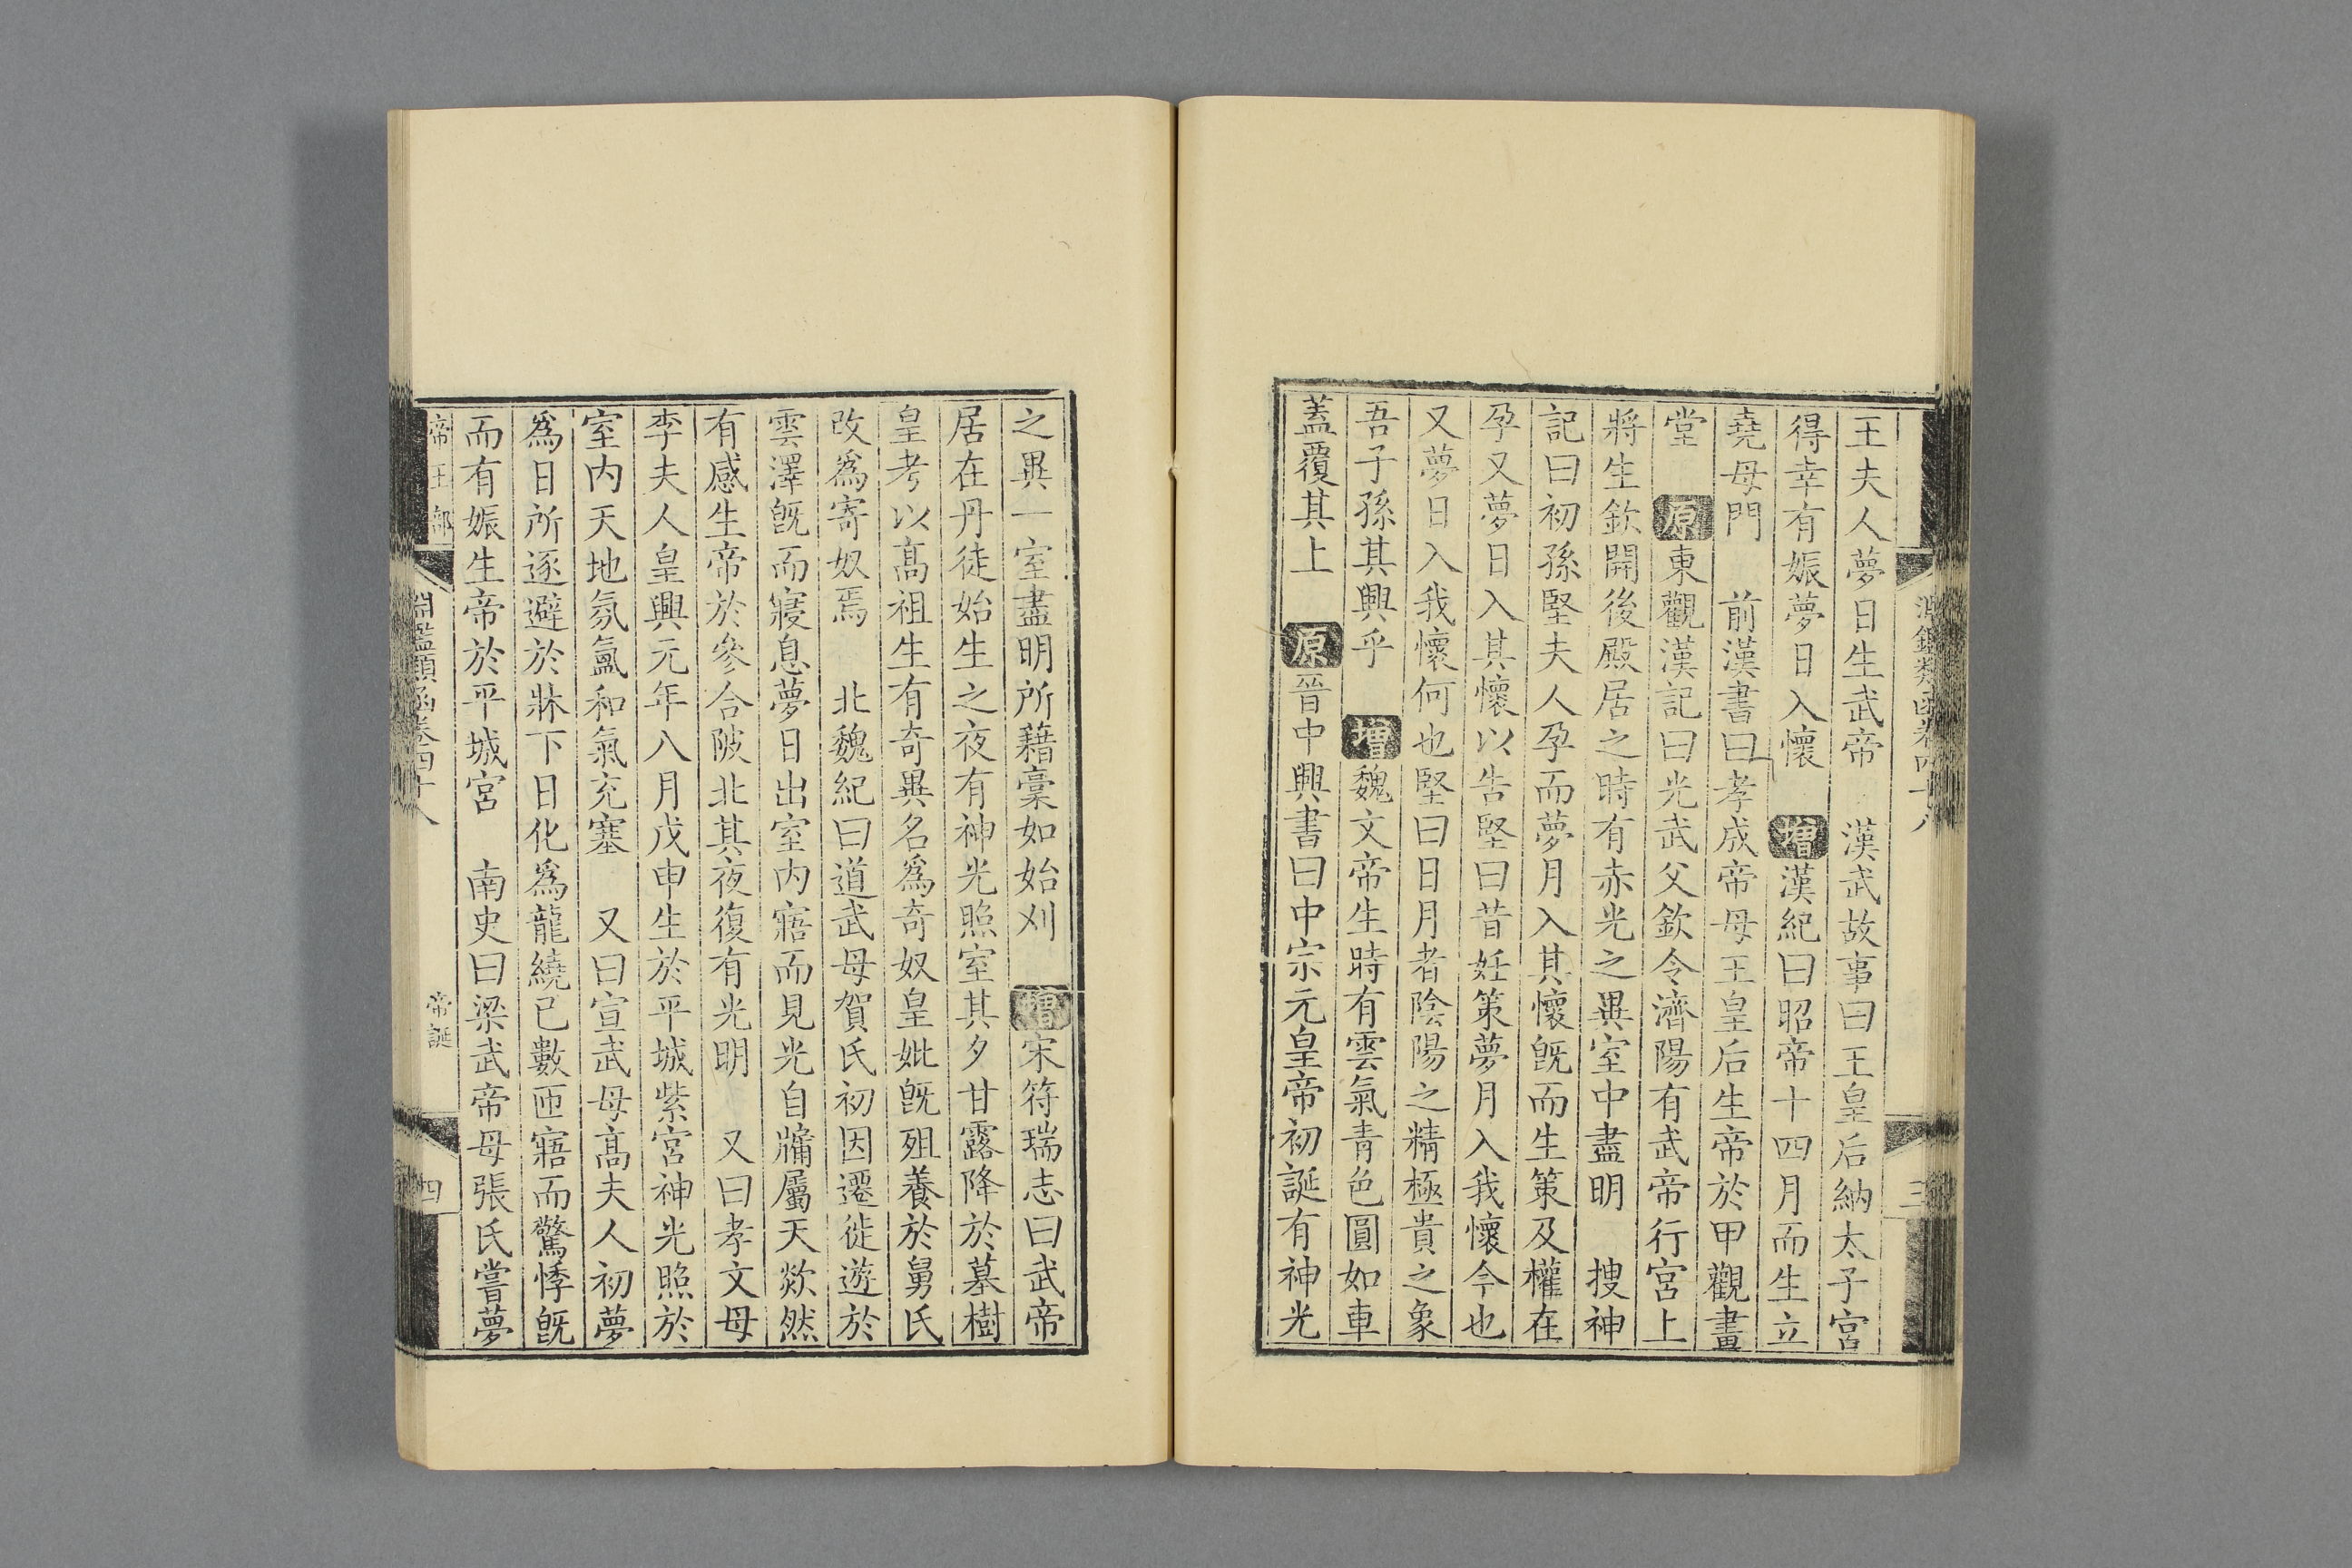 王夫人夢日生武帝　漢武故事曰王皇后納太子宮
得幸有娠夢日入懷　增漢紀曰昭帝十四月而生立
堯母門　前漢書曰孝成帝母王皇后生帝於甲觀畫
堂　原東觀漢記曰光武父欽令濟陽有武帝行宮上
將生欽開後殿居之時有赤光之異室中盡明　搜神
記曰初孫堅夫人孕而夢月入其懷旣而生策及權在
孕又夢日入其懷以告堅曰昔妊策夢月入我懷今也
又夢日入我懷何也堅曰日月者陰陽之精極貴之象
吾子孫其興乎　增魏文帝生時有雲氣青色圓如車
蓋覆其上　原晉中興書曰中宗元皇帝初誕有神光
之異一室盡明所藉藁如始刈　增宋符瑞志曰武帝
居在丹徒始生之夜有神光照室其夕甘露降於墓樹
皇考以高祖生有奇異名爲奇奴皇妣旣殂養於舅氏
改爲寄奴焉　北魏紀曰道武母賀氏初因遷徙遊於
雲澤旣而寢息夢日出室內寤而見光自牖屬天欻然
有感生帝於參合陂北其夜復有光明　又曰孝文母
李夫人皇興元年八月戊申生於平城紫宮神光照於
室内天地氛氳和氣充塞　又曰宣武母高夫人初夢
爲日所逐避於牀下日化爲龍繞已數匝寤而驚悸旣
而有娠生帝於平城宮　南史曰梁武帝母張氏嘗夢
帝王部　淵鑑類函卷四十八　帝誕　四